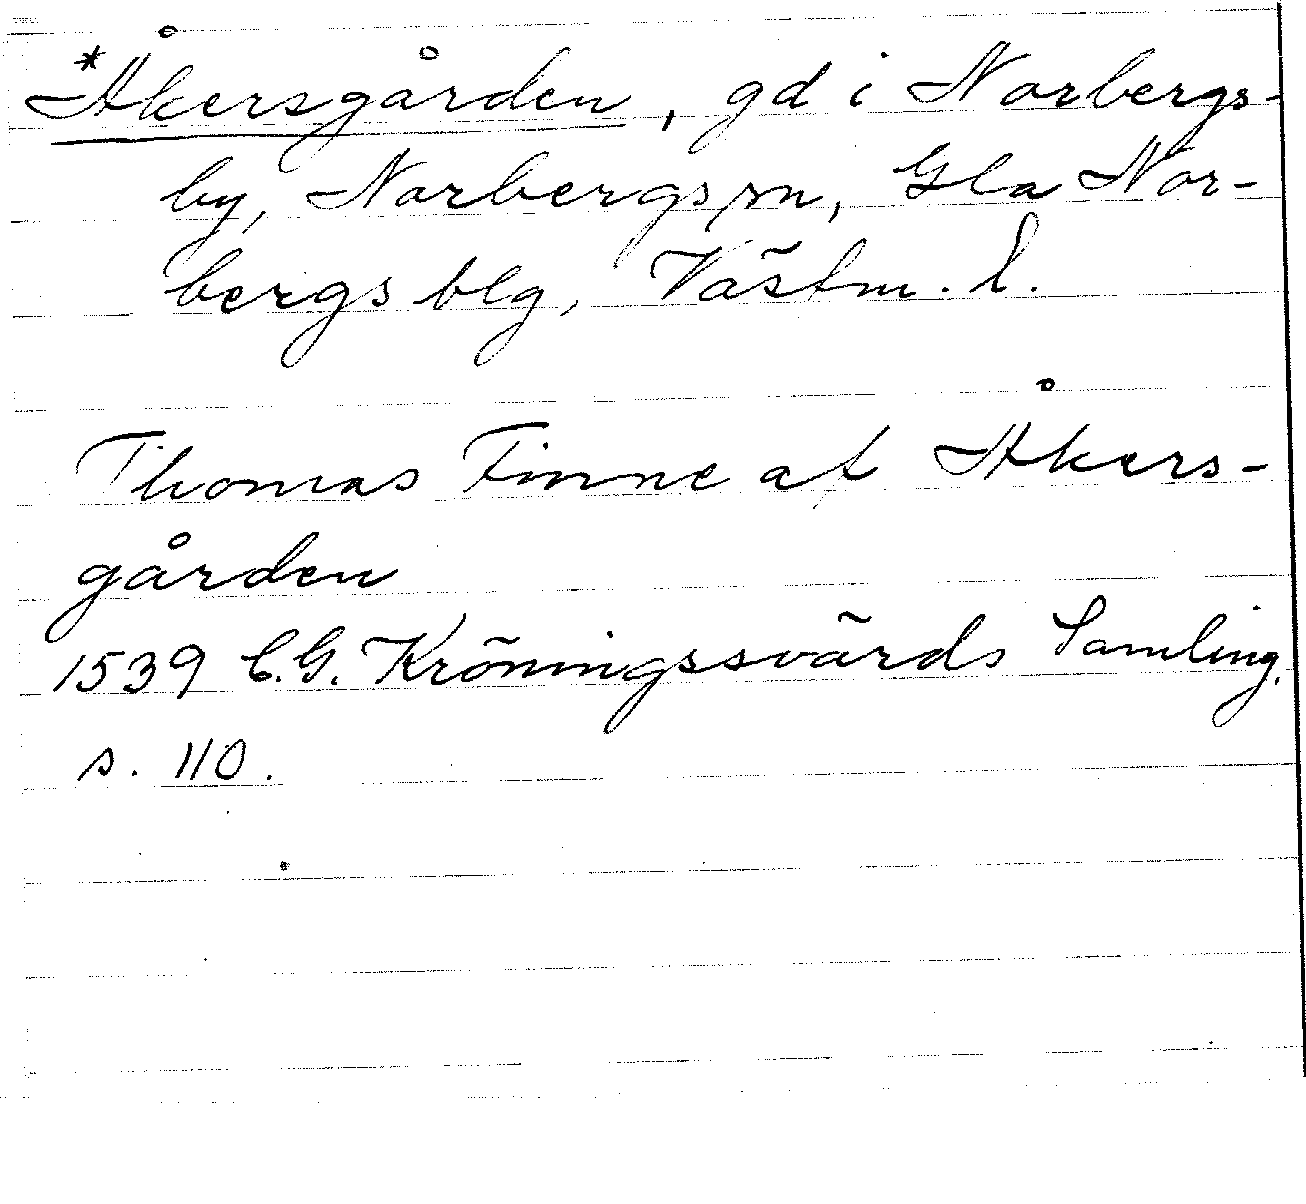 *Åkersgården, gd i Norbergs-
by, Norbergs sn, Gla Nor-
bergs blg, Västm. l.
Thomas Finne af Åkers-
gården
1539 C.G. Kröningssvärds Samling.
s. 110.